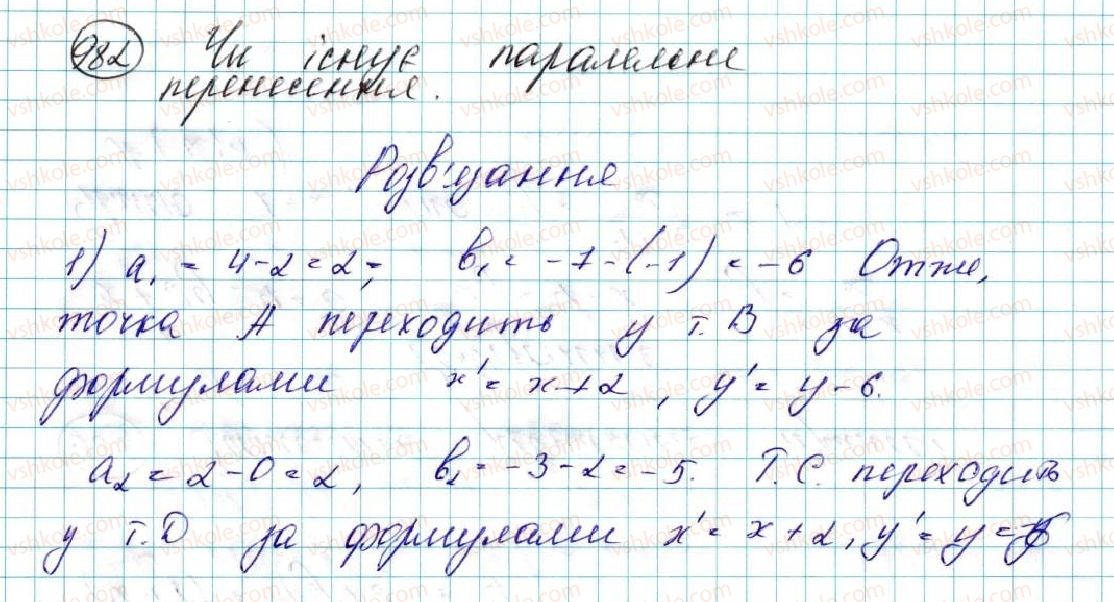 982 Чи існує паралельне
перенесення.
Розв'язання
1) a₁ = 4-2=2; b₁ = -7-(-1) = -6 Отже,
точка A переходить у т. B за
формулами x' = x+2, y' = y-6.
a₂ = 2-0=2, b₂ = -3-2=-5. Т. C. переходить
у т. D за формулами x' = x+2, y' = y